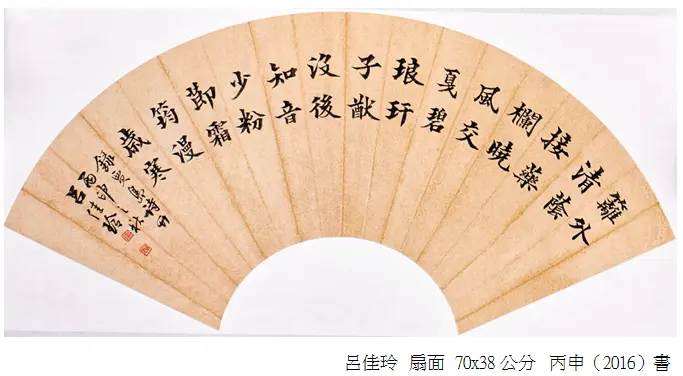 籬外
清蔭
接藥
欄曉
風交
戛碧
琅玕
子猷
沒後
知音
少粉
節霜
筠漫
歲寒
錄 詩
丙申之秋
呂佳玲
呂佳玲 扇面 70x38公分 丙申（2016）書